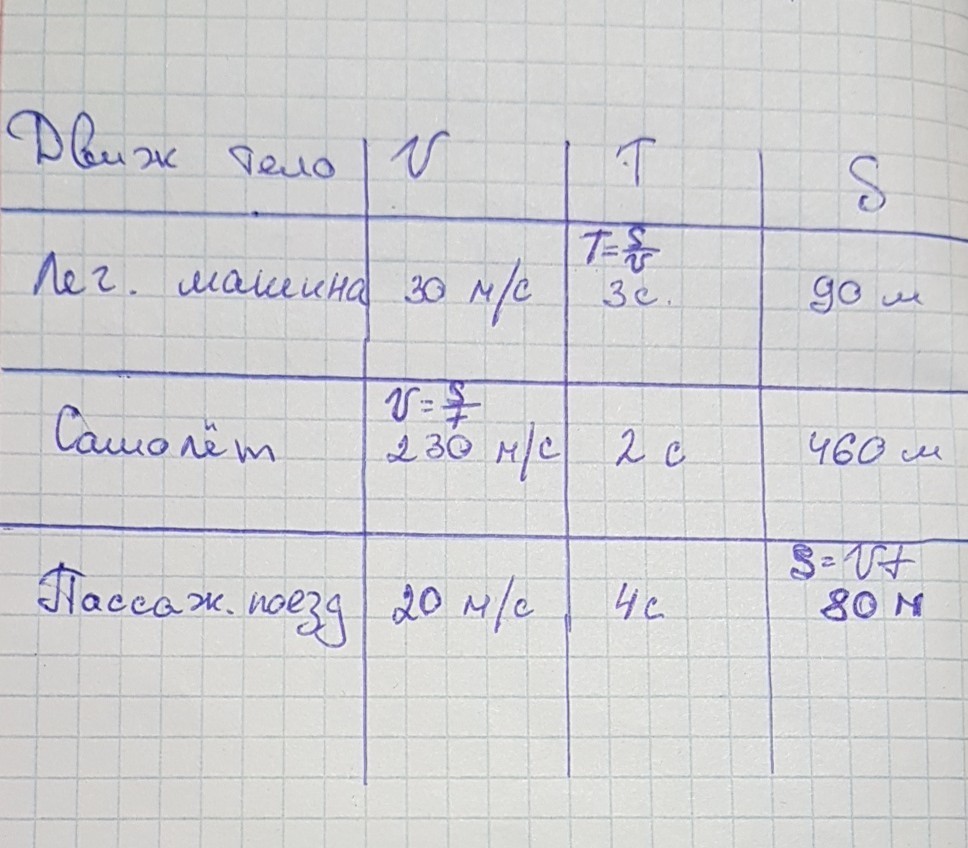 Движ тело V T S
T=S/V
Лег. машина 30 м/с 3с. 90 м
V=S/t
Самолёт 230 м/с 2 с 460 м
S=Vt
Пассаж. поезд 20 м/с 4с 80 м